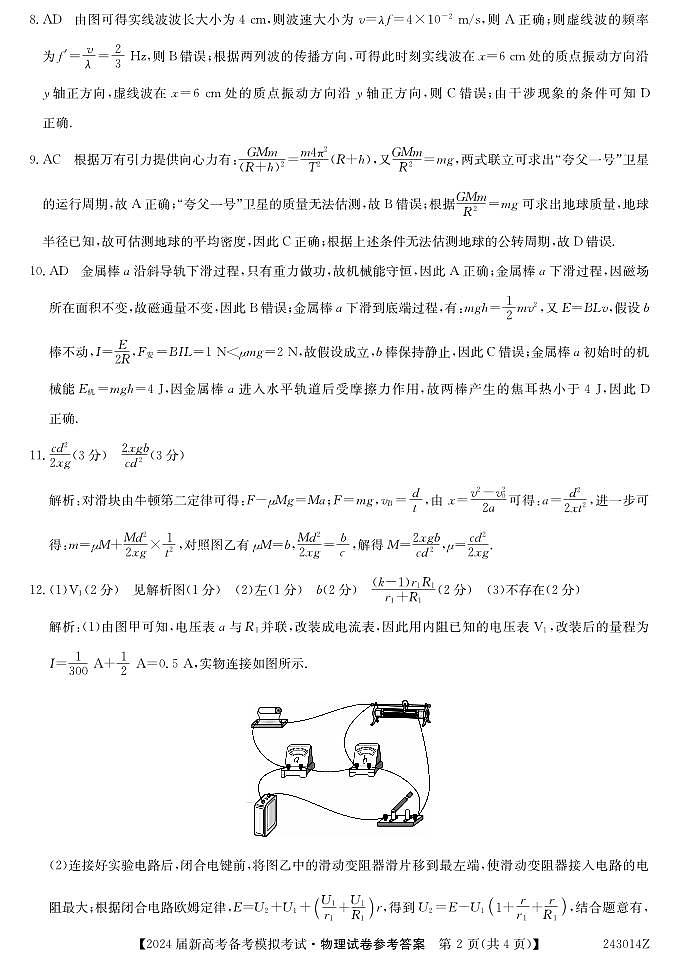 8. AD　由图可得实线波波长大小为 4 cm,则波速大小为 v=λf=4×10⁻² m/s,则 A 正确;则虚线波的频率
为 f′=v/λ=2/3 Hz,则 B 错误;根据两列波的传播方向,可得此时刻实线波在 x=6 cm 处的质点振动方向沿
y 轴正方向,虚线波在 x=6 cm 处的质点振动方向沿 y 轴正方向,则 C 错误;由干涉现象的条件可知 D
正确.
9. AC　根据万有引力提供向心力有:GMm/(R+h)²=m4π²/T²(R+h),又GMm/R²=mg,两式联立可求出“夸父一号”卫星
的运行周期,故 A 正确;“夸父一号”卫星的质量无法估测,故 B 错误;根据GMm/R²=mg 可求出地球质量,地球
半径已知,故可估测地球的平均密度,因此 C 正确;根据上述条件无法估测地球的公转周期,故 D 错误.
10. AD　金属棒 a 沿斜导轨下滑过程,只有重力做功,故机械能守恒,因此 A 正确;金属棒 a 下滑过程,因磁场
所在面积不变,故磁通量不变,因此 B 错误;金属棒 a 下滑到底端过程,有:mgh=1/2mv²,又 E=BLv,假设 b
棒不动,I=E/2R,F安=BIL=1 N<μmg=2 N,故假设成立,b 棒保持静止,因此 C 错误;金属棒 a 初始时的机
械能 E机=mgh=4 J,因金属棒 a 进入水平轨道后受摩擦力作用,故两棒产生的焦耳热小于 4 J,因此 D
正确.
11. cd²/2xg(3 分)　2xgb/cd²(3 分)
解析:对滑块由牛顿第二定律可得:F−μMg=Ma;F=mg,vB=d/t,由 x=(v²−v₀²)/2a可得:a=d²/2xt²,进一步可
得:m=μM+Md²/2xg×1/t²,对照图乙有 μM=b,Md²/2xg=b/c,解得 M=2xgb/cd²,μ=cd²/2xg.
12. (1)V₁(2 分)　见解析图(1 分)　(2)左(1 分)　b(2 分)　(k−1)r₁R₁/(r₁+R₁)(2 分)　(3)不存在(2 分)
解析:(1)由图甲可知,电压表 a 与 R₁并联,改装成电流表,因此用内阻已知的电压表 V₁,改装后的量程为
I=1/300 A+1/2 A=0.5 A,实物连接如图所示.
a
b
(2)连接好实验电路后,闭合电键前,将图乙中的滑动变阻器滑片移到最左端,使滑动变阻器接入电路的电
阻最大;根据闭合电路欧姆定律,E=U₂+U₁+(U₁/r₁+U₁/R₁)r,得到 U₂=E−U₁(1+r/r₁+r/R₁),结合题意有,
【2024 届新高考备考模拟考试·物理试卷参考答案　第 2 页(共 4 页)】　243014Z